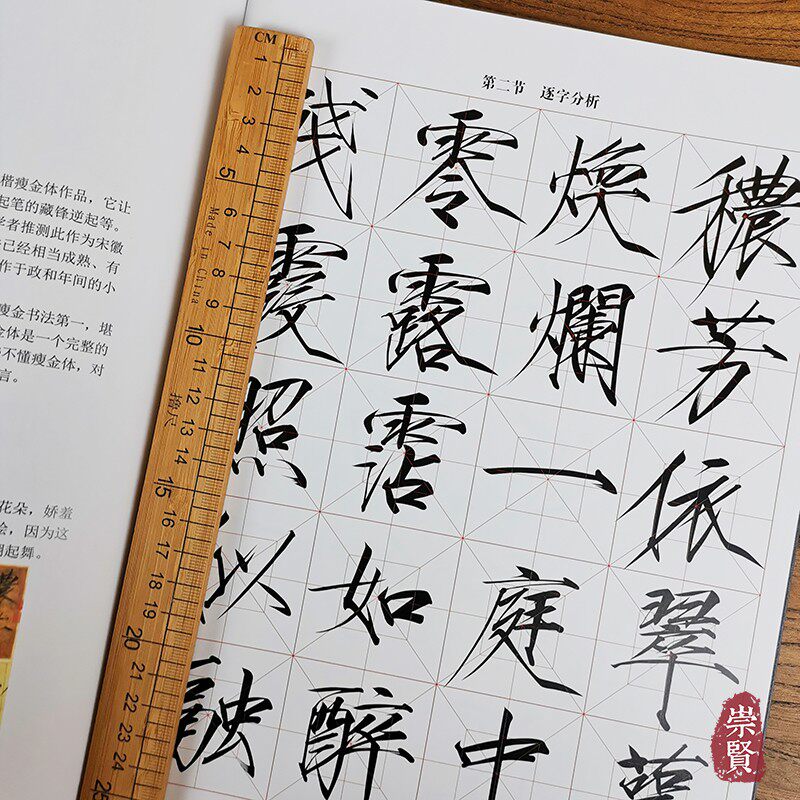 楷瘦金体作品，它让
起笔的藏锋逆起等。
学者推测此作为宋徽
已经相当成熟、有
作于政和年间的小
瘦金书法第一，堪
金体是一个完整的
不懂瘦金体，对
言。
花朵，娇羞
绘，因为这
起舞。
CM
1 2 3 4 5 6 7 8 9 10 11 12 13 14 15 16 17 18 19 20 21 22 23 24 25
Made in China
尺
第二节 逐字分析
穠芳依翠萼
煥爛一庭中
零露霑如醉
殘霞照似融
崇賢